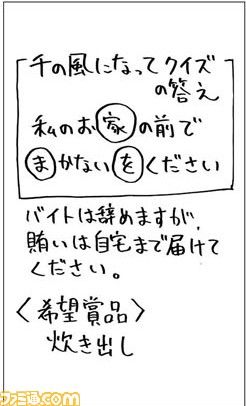 千の風になってクイズ
の答え
私のお家の前で
まかないをください
バイトは辞めますが、
賄いは自宅まで届けて
ください。
〈希望賞品〉
炊き出し
ファミ通.com